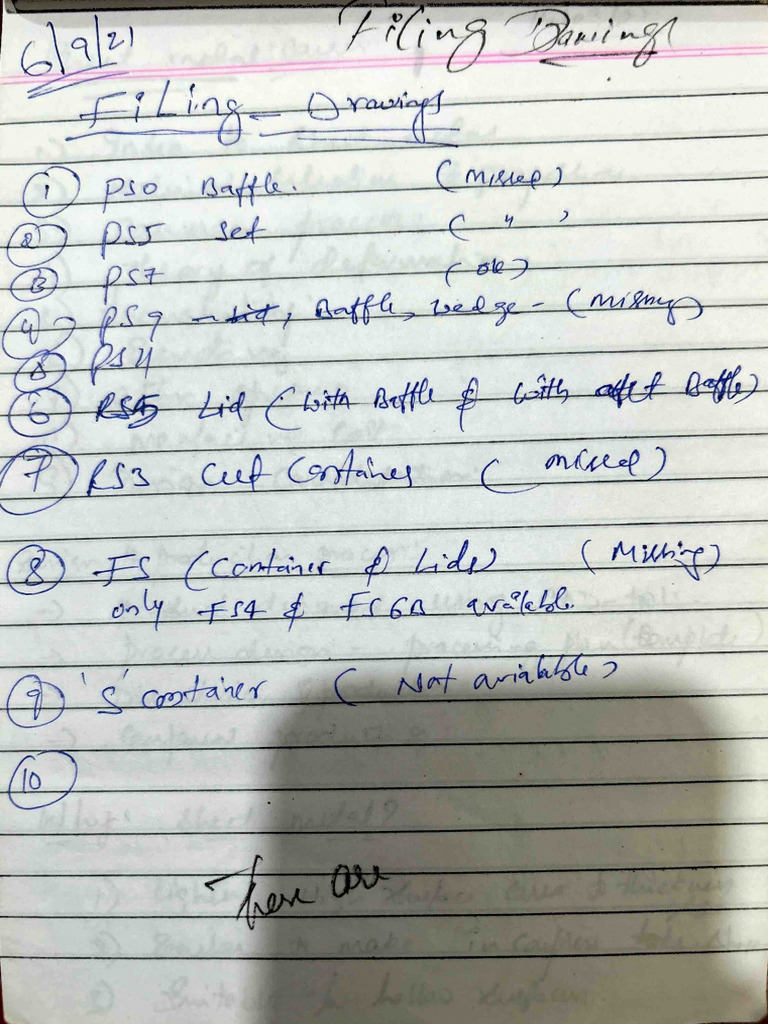 6/9/21 Filing Drawings
Filing - Drawings
① PS0 Baffle. (Missed)
② PS5 Set ( " )
③ PS7 (ok)
④ PS9 - Lid, Baffle, wedge - (missing)
⑤ PS11
⑥ RS5 Lid (with Baffle & with out Baffle)
⑦ RS3 Container (missed)
⑧ FS (Container & Lids) (Missing)
only FS4 & FS6B available.
⑨ 'S' container (Not avialable)
⑩
There are